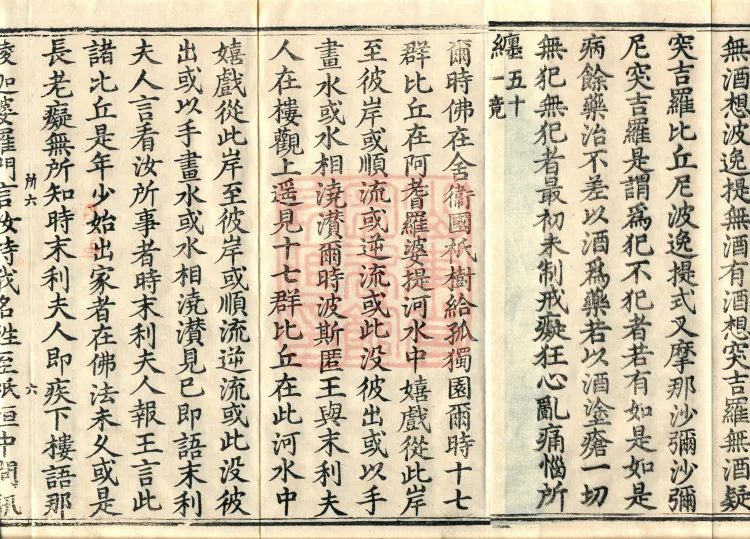 無酒想波逸提無酒有酒想突吉羅無酒疑
突吉羅比丘尼波逸提式叉摩那沙彌沙彌
尼突吉羅是謂爲犯不犯者若有如是如是
病餘藥治不差以酒爲藥若以酒塗瘡一切
無犯無犯者最初未制戒癡狂心亂痛惱所
纏五十一竟
爾時佛在舍衞國祇樹給孤獨園爾時十七
群比丘在阿耆羅婆提河水中嬉戲從此岸
至彼岸或順流或逆流或此没彼出或以手
畫水或水相澆灒爾時波斯匿王與末利夫
人在樓觀上遥見十七群比丘在此河水中
嬉戲從此岸至彼岸或順流逆流或此没彼
出或以手畫水或水相澆灒見已即語末利
夫人言看汝所事者時末利夫人報王言此
諸比丘是年少始出家者在佛法未久或是
長老癡無所知時末利夫人即疾下樓語那
所六 六
陵迦婆羅門言汝持我名往至祇洹中問訊